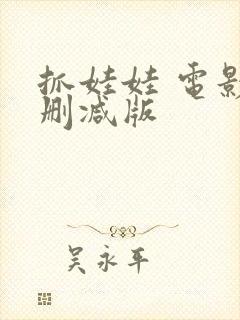 抓娃娃 電影
删減版
吴永平